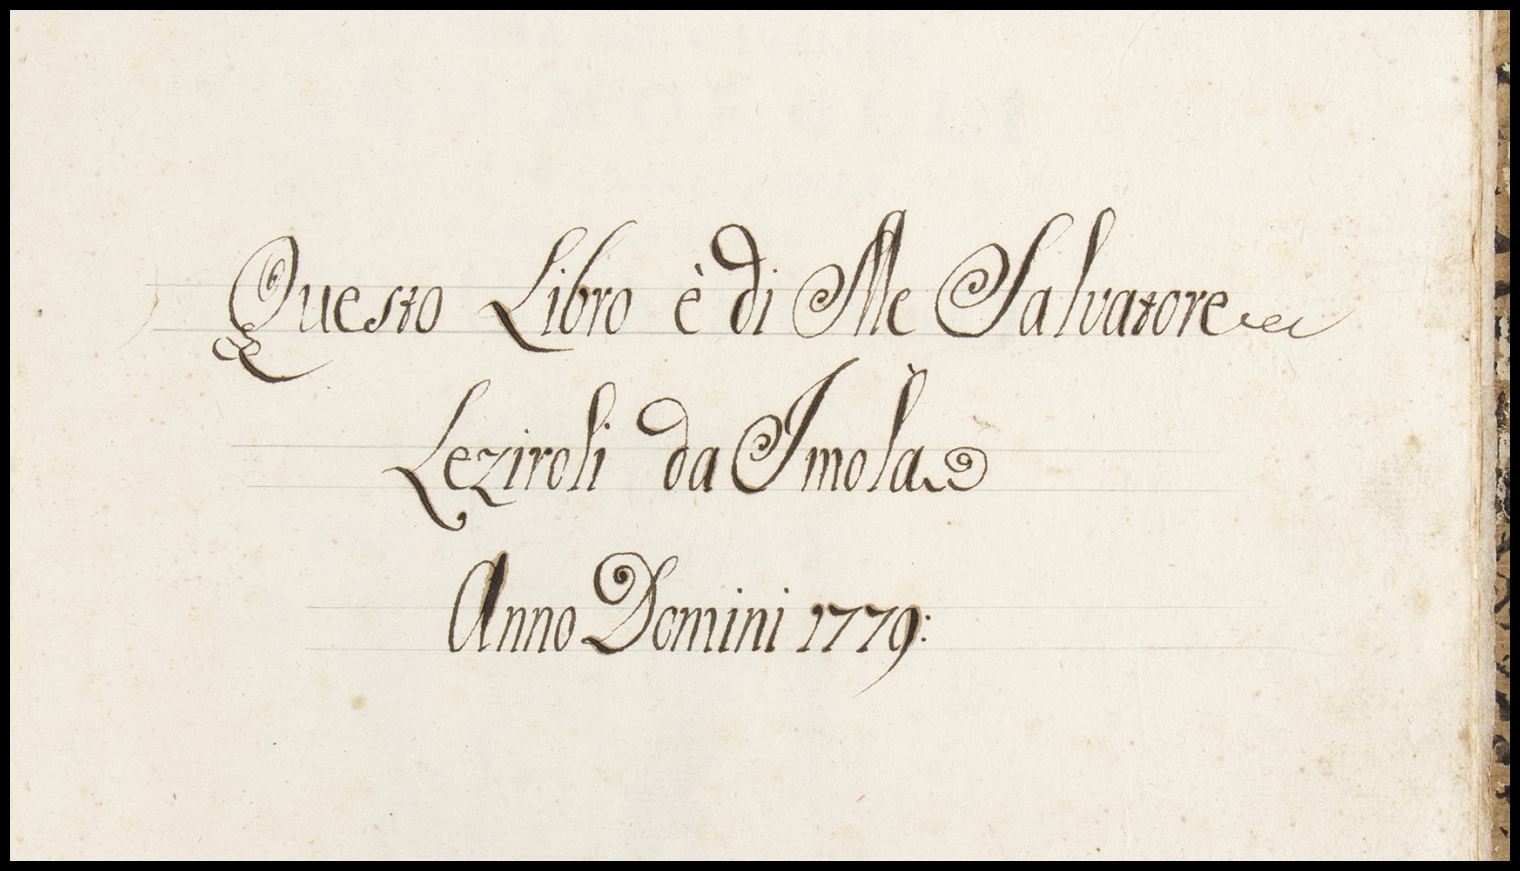 Questo Libro è di Me Salvatore
Leziroli da Imola
Anno Domini 1779: